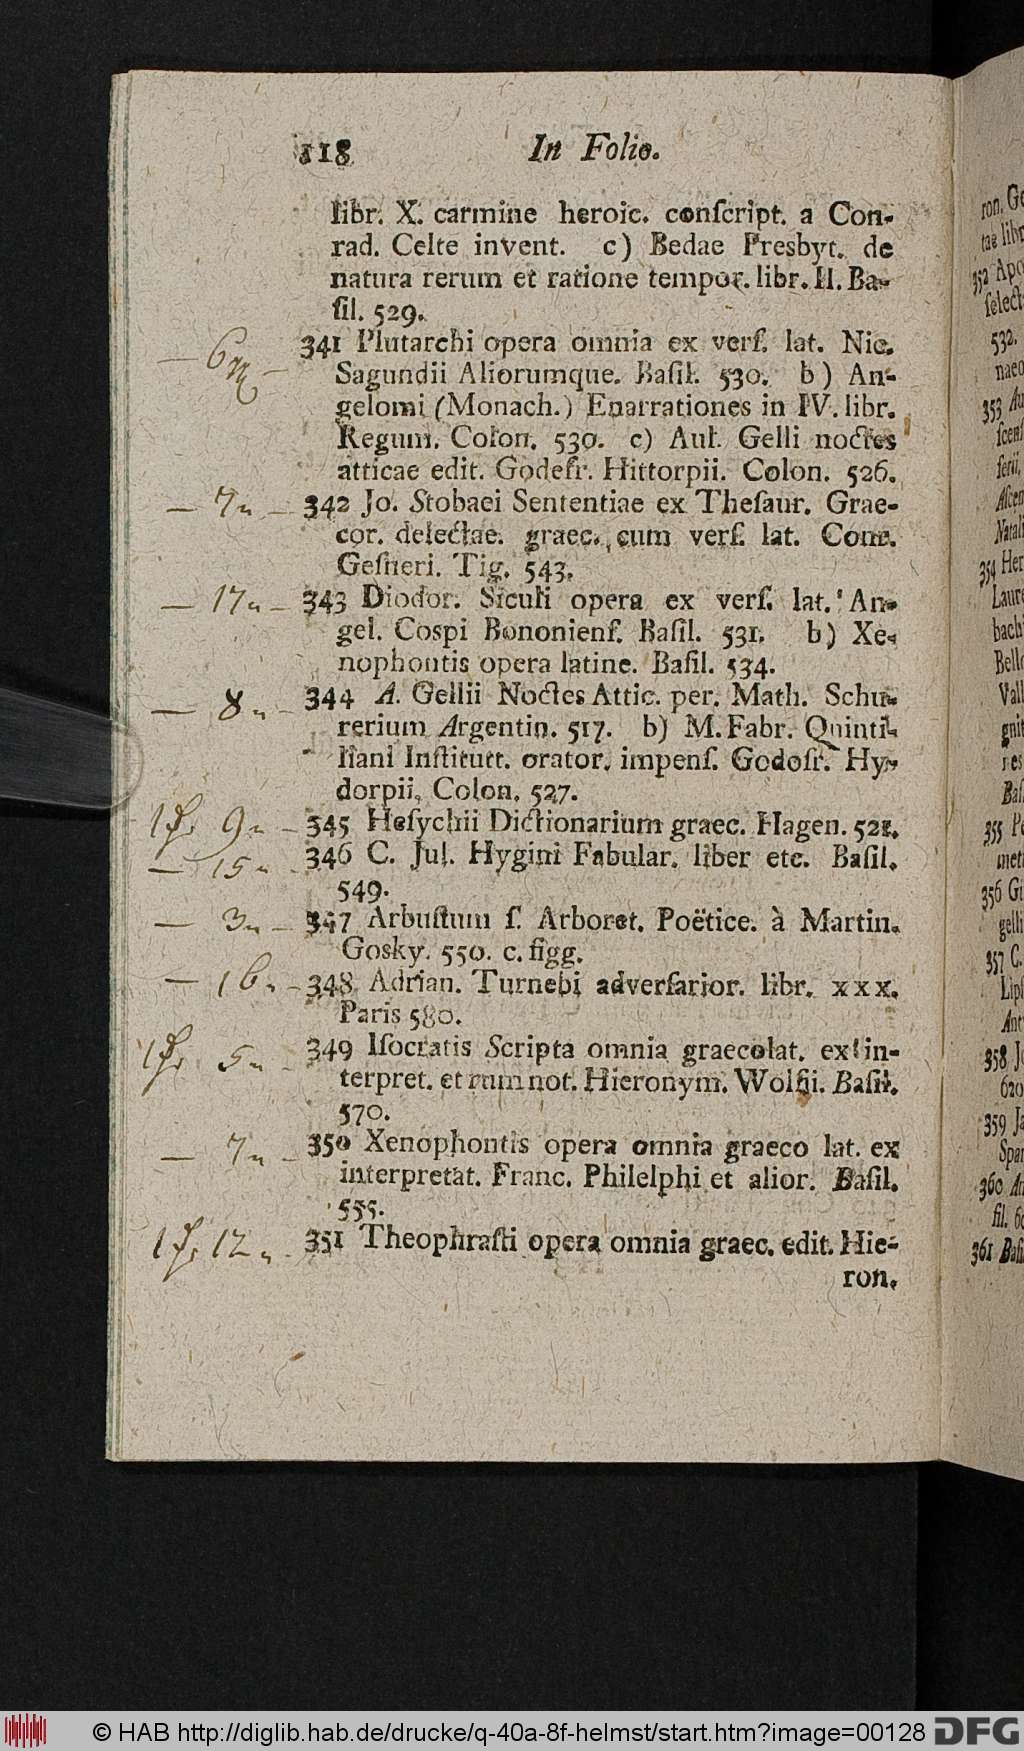 118 In Folio.
libr. X. carmine heroic. conſcript. a Con-
rad. Celte invent. c) Bedae Presbyt. de
natura rerum et ratione tempor. libr. II. Ba-
ſil. 529.
— 6 — 341 Plutarchi opera omnia ex verſ. lat. Nic.
Sagundii Aliorumque. Baſil. 530. b) An-
gelomi (Monach.) Enarrationes in IV. libr.
Regum. Colon. 530. c) Aul. Gelli noctes
atticae edit. Godefr. Hittorpii. Colon. 526.
— 7 — 342 Jo. Stobaei Sententiae ex Theſaur. Grae-
cor. delectae. graec. cum verſ. lat. Conr.
Geſneri. Tig. 543.
— 17 — 343 Diodor. Siculi opera ex verſ. lat. An-
gel. Coſpi Bononienſ. Baſil. 531. b) Xe-
nophontis opera latine. Baſil. 534.
— 8 — 344 A. Gellii Noctes Attic. per. Math. Schu-
rerium Argentin. 517. b) M. Fabr. Quinti-
liani Inſtitutt. orator. impenſ. Godofr. Hy-
dorpii, Colon. 527.
1 9 — 345 Heſychii Dictionarium graec. Hagen. 521.
— 15 - 346 C. Jul. Hygini Fabular. liber etc. Baſil.
549.
— 3 — 347 Arbuſtum ſ. Arboret. Poëtice. à Martin.
Gosky. 550. c. figg.
— 16 — 348 Adrian. Turnebi adverſarior. libr. xxx.
Paris 580.
1 5 349 Iſocratis Scripta omnia graecolat. ex in-
terpret. et cum not. Hieronym. Wolfii. Baſil.
570.
— 7 — 350 Xenophontis opera omnia graeco lat. ex
interpretat. Franc. Philelphi et alior. Baſil.
555.
1 12 - 351 Theophraſti opera omnia graec. edit. Hie-
ron.
ron. Ge
tae libr
352 Apo
ſelect
532.
naeo
353 Au
ſcenſ
ſerii.
Aſcen
Natali
354 Her
Laure
bach
Bello
Vall
gnit
res
Baſ
355 Pe
met
356 Gu
gelli
357 C.
Lipſ
Ant
358 J
620
359 Ja
Spar
360 A
ſil. 6
361 Baſi
© HAB http://diglib.hab.de/drucke/q-40a-8f-helmst/start.htm?image=00128 DFG